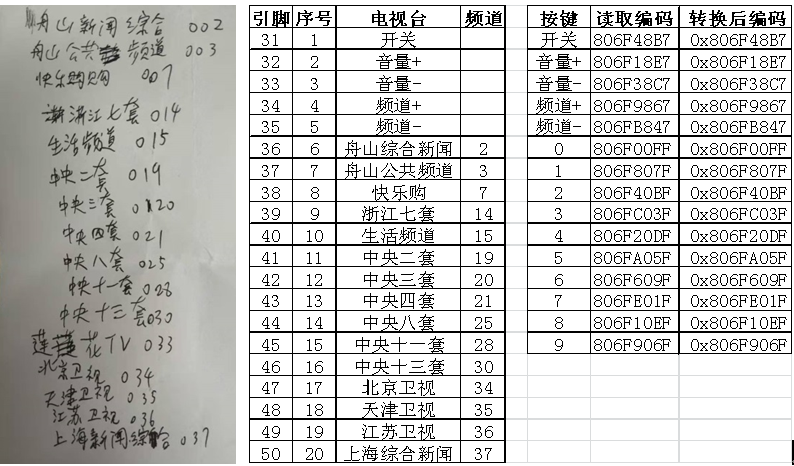 舟山新闻综合 002
舟山公共频道 003
快乐购购 007
浙江七套 014
生活频道 015
中央二套 019
中央三套 020
中央四套 021
中央八套 025
中央十一套 028
中央十三套 030
莲花TV 033
北京卫视 034
天津卫视 035
江苏卫视 036
上海新闻综合 037
引脚 序号 电视台 频道
31 1 开关
32 2 音量+
33 3 音量-
34 4 频道+
35 5 频道-
36 6 舟山综合新闻 2
37 7 舟山公共频道 3
38 8 快乐购 7
39 9 浙江七套 14
40 10 生活频道 15
41 11 中央二套 19
42 12 中央三套 20
43 13 中央四套 21
44 14 中央八套 25
45 15 中央十一套 28
46 16 中央十三套 30
47 17 北京卫视 34
48 18 天津卫视 35
49 19 江苏卫视 36
50 20 上海综合新闻 37
按键 读取编码 转换后编码
开关 806F48B7 0x806F48B7
音量+ 806F18E7 0x806F18E7
音量- 806F38C7 0x806F38C7
频道+ 806F9867 0x806F9867
频道- 806FB847 0x806FB847
0 806F00FF 0x806F00FF
1 806F807F 0x806F807F
2 806F40BF 0x806F40BF
3 806FC03F 0x806FC03F
4 806F20DF 0x806F20DF
5 806FA05F 0x806FA05F
6 806F609F 0x806F609F
7 806FE01F 0x806FE01F
8 806F10EF 0x806F10EF
9 806F906F 0x806F906F